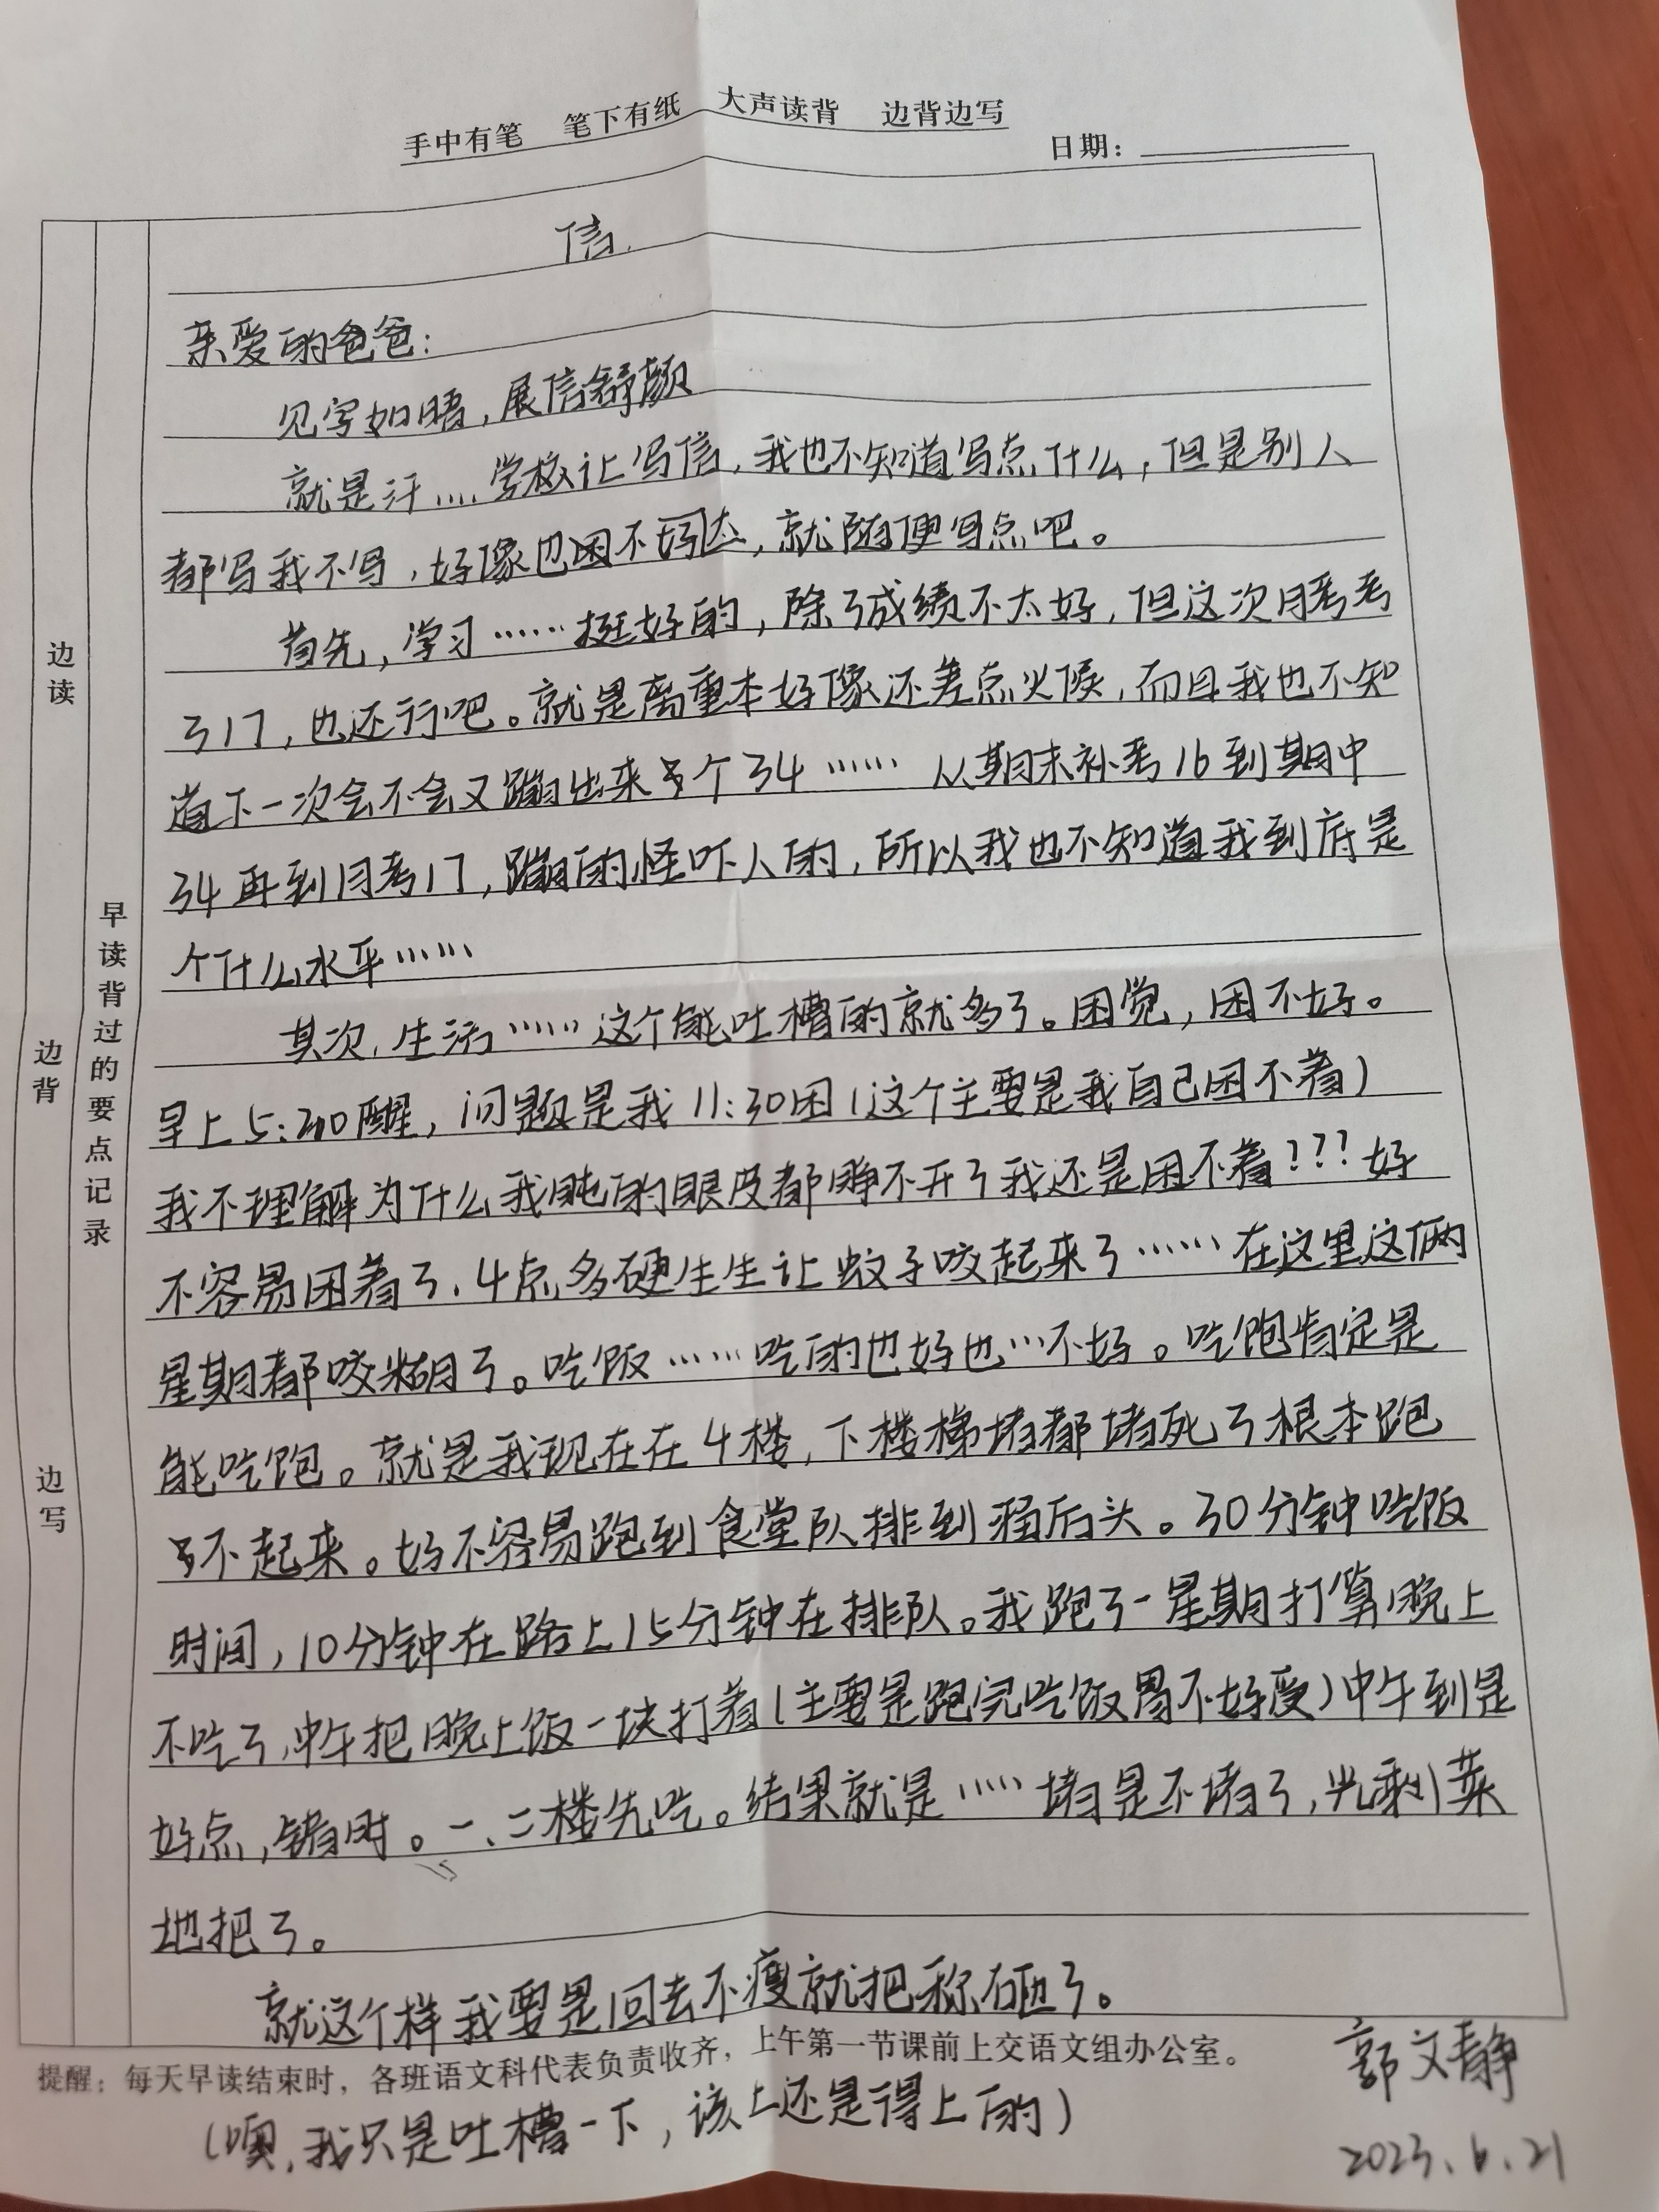 手中有笔 笔下有纸 大声读背 边背边写
日期：
信
亲爱的爸爸：
见字如晤，展信舒颜
就是汗....学校让写信，我也不知道写点什么，但是别人
都写我不写，好像也困不好态，就随便写点吧。
首先，学习……挺好的，除了成绩不太好，但这次月考考
了17，也还行吧。就是离重本好像还差点火候，而且我也不知
道下一次会不会又蹦出来个34……从期末补考16到期中
34再到月考17，蹦的怪吓人的，所以我也不知道我到府是
个什么水平……
其次，生活……这个能吐槽的就多了。困觉，困不好。
早上5:20醒，问题是我11:30困（这个主要是我自己困不着）
我不理解为什么我盹的眼皮都睁不开了我还是困不着???好
不容易困着了，4点多硬生生让蚊子咬起来了……在这里这俩
星期都咬糊了。吃饭……吃的也好也…不好。吃饱肯定是
能吃饱。就是我现在在4楼，下楼梯堵都堵死了根本跑
不起来。好不容易跑到食堂队排到稀后头。30分钟吃饭
时间，10分钟在路上15分钟在排队。我跑了一星期打算晚上
不吃了，中午把晚上饭一块打着（主要是跑完吃饭胃不好受）中午到是
好点，错时。一、二楼先吃。结果就是……堵是不堵了，光剩菜
地把了。
就这个样我要是回去不瘦就把称砸了。
提醒：每天早读结束时，各班语文科代表负责收齐，上午第一节课前上交语文组办公室。
（噢，我只是吐槽一下，该上还是得上的）
郭文静
2023.6.21
边读
边背
边写
早读背过的要点记录